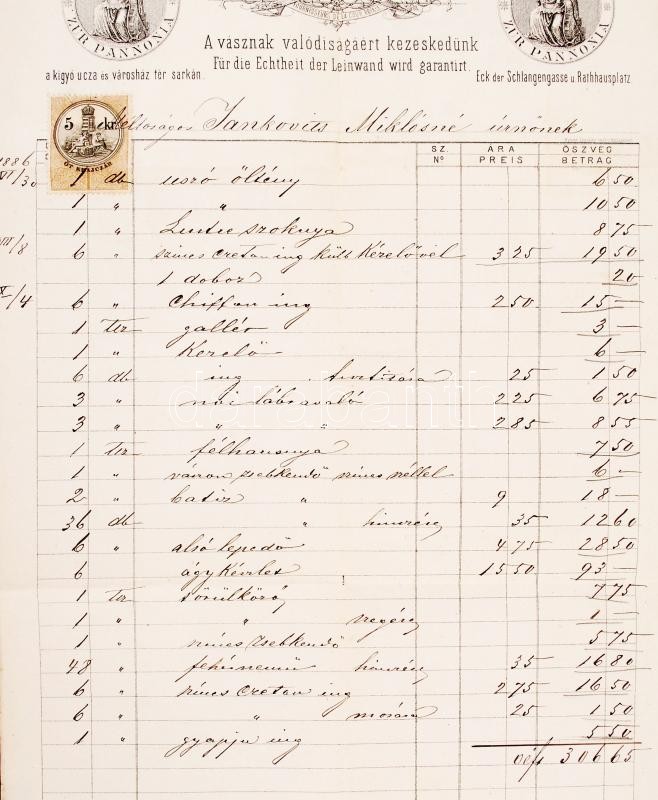 ZUR PANNONIA
ZUR PANNONIA
A vásznak valódiságáért kezeskedünk
Für die Echtheit der Leinwand wird garantirt.
a kigyó ucza és városház tér sarkán.
Eck der Schlangengasse u. Rathhausplatz
5 kr
ÖT KRAJCZÁR
Méltóságos Jankovits Miklósné úrnőnek
SZ. Nº ÁRA PREIS ÖSZVEG BETRAG
1886
VI/30 1 db uszó öltöny 6 50
1 " " 10 50
1 " szoknya 8 75
VIII/8 6 " szines cretan ing külb kézelővel 3 25 19 50
1 doboz 20
X/4 6 " Chiffon ing 2 50 15 —
1 ter gallér 3 —
1 " Kézelő 6 —
6 db ing tisztitása 25 1 50
3 " női lábravaló 2 25 6 75
3 " " " 2 85 8 55
1 ter félharisnya 7 50
1 " vászon zsebkendő szines széllel 6 —
2 " batiz " 9 18 —
36 db " himzés 35 12 60
6 " alsó lepedő 4 75 28 50
6 ágykészlet 15 50 93 —
1 ter törülköző 7 75
1 " " szegés 1 —
1 " szines zsebkendő 5 75
48 " fehérnemü himzés 35 16 80
6 " szines Cretan ing 2 75 16 50
6 " " mosása 25 1 50
1 " gyapju ing 5 50
306 65
darabanth